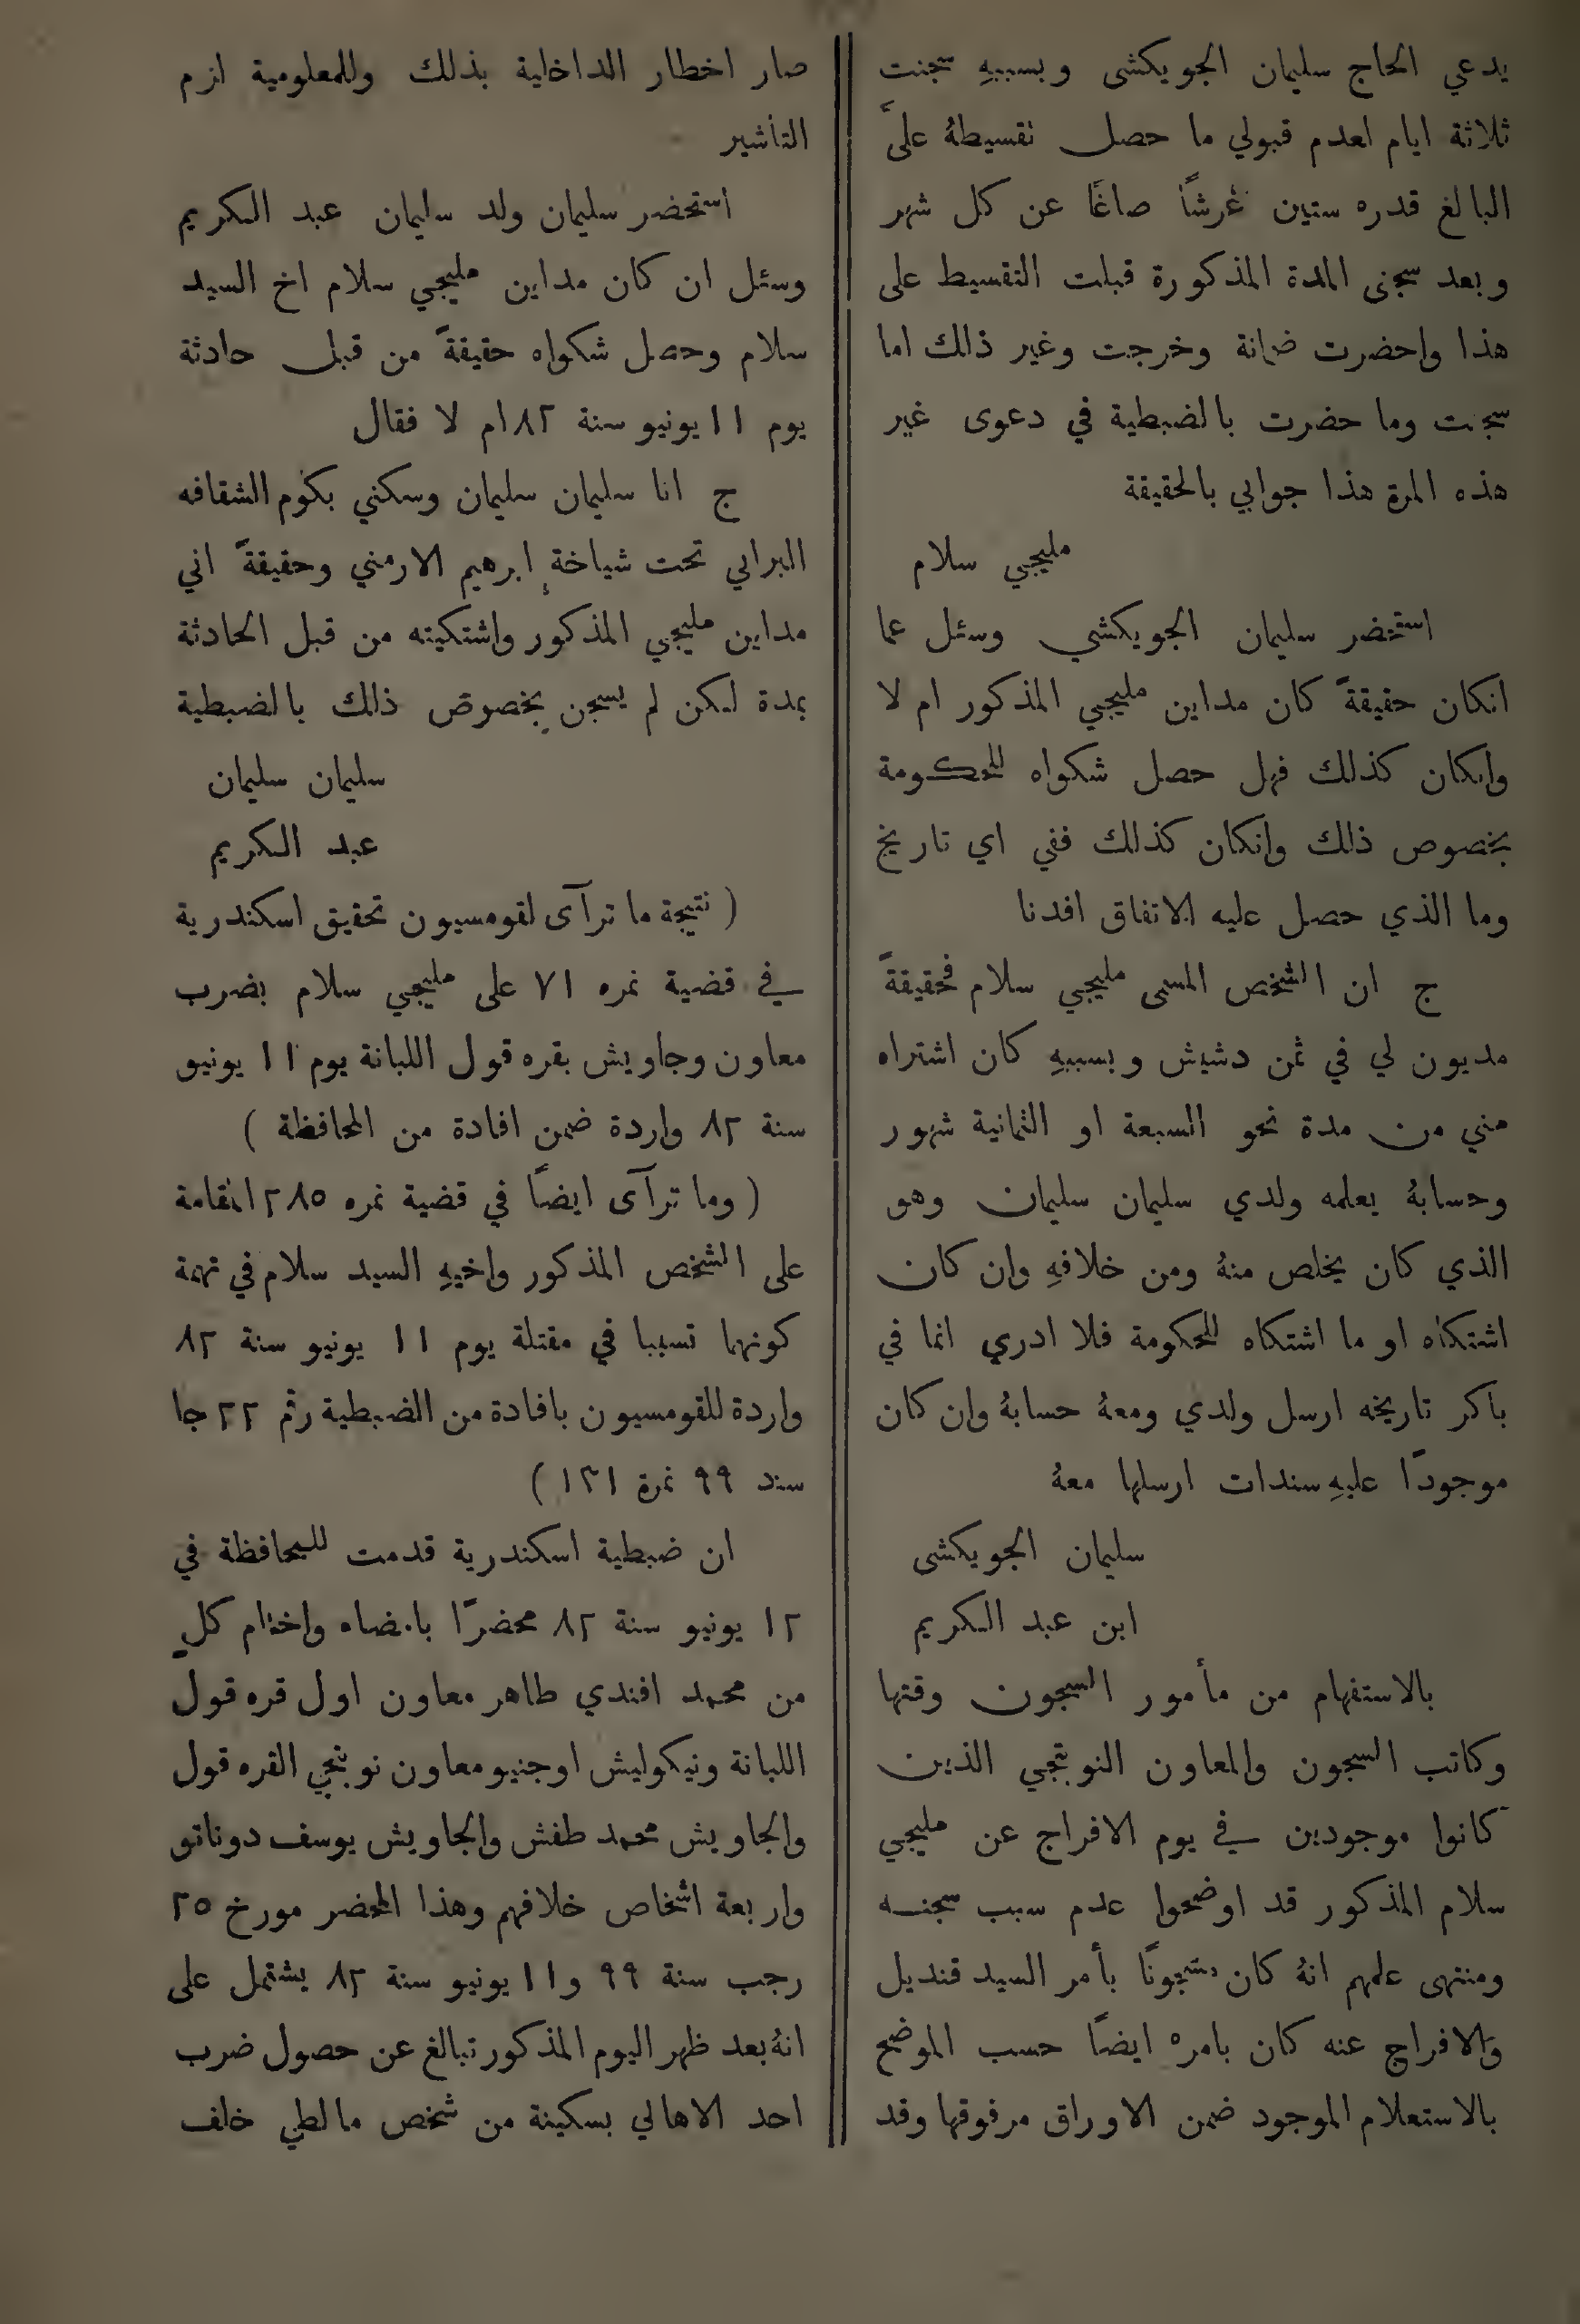 يدعي الحاج سليمان الجويكشى وبسببهِ سجنت
ثلاثة ايام لعدم قبولي ما حصل تقسيطهُ عليَّ
البالغ قدره ستين غرشًا صاغًا عن كل شهر
وبعد سجنى المدة المذكورة قبلت التقسيط على
هذا واحضرت ضمانة وخرجت وغير ذلك اما
سجنت وما حضرت بالضبطية في دعوى غير
هذه المرة هذا جوابي بالحقيقة
مليجي سلام
استحضر سليمان الجويكشي وسئل عما
انكان حقيقةً كان مداين مليجي المذكور ام لا
وانكان كذلك فهل حصل شكواه للحكومة
بخصوص ذلك وانكان كذلك ففي اي تاريخ
وما الذي حصل عليه الاتفاق افدنا
ج ان الشخص المسمى مليجي سلام فحقيقةً
مديون لي في ثمن دشيش وبسببهِ كان اشتراه
مني من مدة نحو السبعة او الثمانية شهور
وحسابهُ يعلمه ولدي سليمان سليمان وهو
الذي كان يخلص منهُ ومن خلافهِ وان كان
اشتكاه او ما اشتكاه للحكومة فلا ادري انما في
باكر تاريخه ارسل ولدي ومعهُ حسابهُ وان كان
موجودًا عليهِ سندات ارسلها معهُ
سليمان الجويكشى
ابن عبد الكريم
بالاستفهام من مأمور السجون وقتها
وكاتب السجون والمعاون النوبتجي الذين
كانوا موجودين في يوم الافراج عن مليجي
سلام المذكور قد اوضحوا عدم سبب سجنه
ومنتهى علمهم انهُ كان مسجونًا بأمر السيد قنديل
والافراج عنه كان بامره ايضًا حسب الموضح
بالاستعلام الموجود ضمن الاوراق مرفوقها وقد
صار اخطار الداخلية بذلك وللمعلومية لزم
التأشير
استحضر سليمان ولد سليمان عبد الكريم
وسئل ان كان مداين مليجي سلام اخ السيد
سلام وحصل شكواه حقيقةً من قبل حادثة
يوم ١١ يونيو سنة ٨٢ ام لا فقال
ج انا سليمان سليمان وسكني بكوم الشقافه
البراني تحت شياخة ابرهيم الارمني وحقيقةً اني
مداين مليجي المذكور واشتكيته من قبل الحادثة
بمدة لكن لم يسجن بخصوص ذلك بالضبطية
سليمان سليمان
عبد الكريم
( نتيجة ما ترآى لقومسيون تحقيق اسكندرية
في قضية نمره ٧١ على مليجي سلام بضرب
معاون وجاويش بقره قول اللبانة يوم ١١ يونيو
سنة ٨٢ واردة ضمن افادة من المحافظة )
( وما ترآى ايضًا في قضية نمره ٢٨٥ المقامة
على الشخص المذكور واخيهِ السيد سلام في تهمة
كونهما تسببا في مقتلة يوم ١١ يونيو سنة ٨٢
واردة للقومسيون بافادة من الضبطية رقم ٢٢ جا
سند ٩٩ نمرة ١٣١ )
ان ضبطية اسكندرية قدمت للمحافظة في
١٢ يونيو سنة ٨٢ محضرًا بامضاه واختام كلٍ
من محمد افندي طاهر معاون اول قره قول
اللبانة ونيكوليش اوجنيو معاون نوبتجي القره قول
والجاويش محمد طفش والجاويش يوسف دوناتو
واربعة اشخاص خلافهم وهذا المحضر مورخ ٢٥
رجب سنة ٩٩ و١١ يونيو سنة ٨٢ يشتمل على
انهُ بعد ظهر اليوم المذكور تبالغ عن حصول ضرب
احد الاهالي بسكينة من شخص مالطي خلف